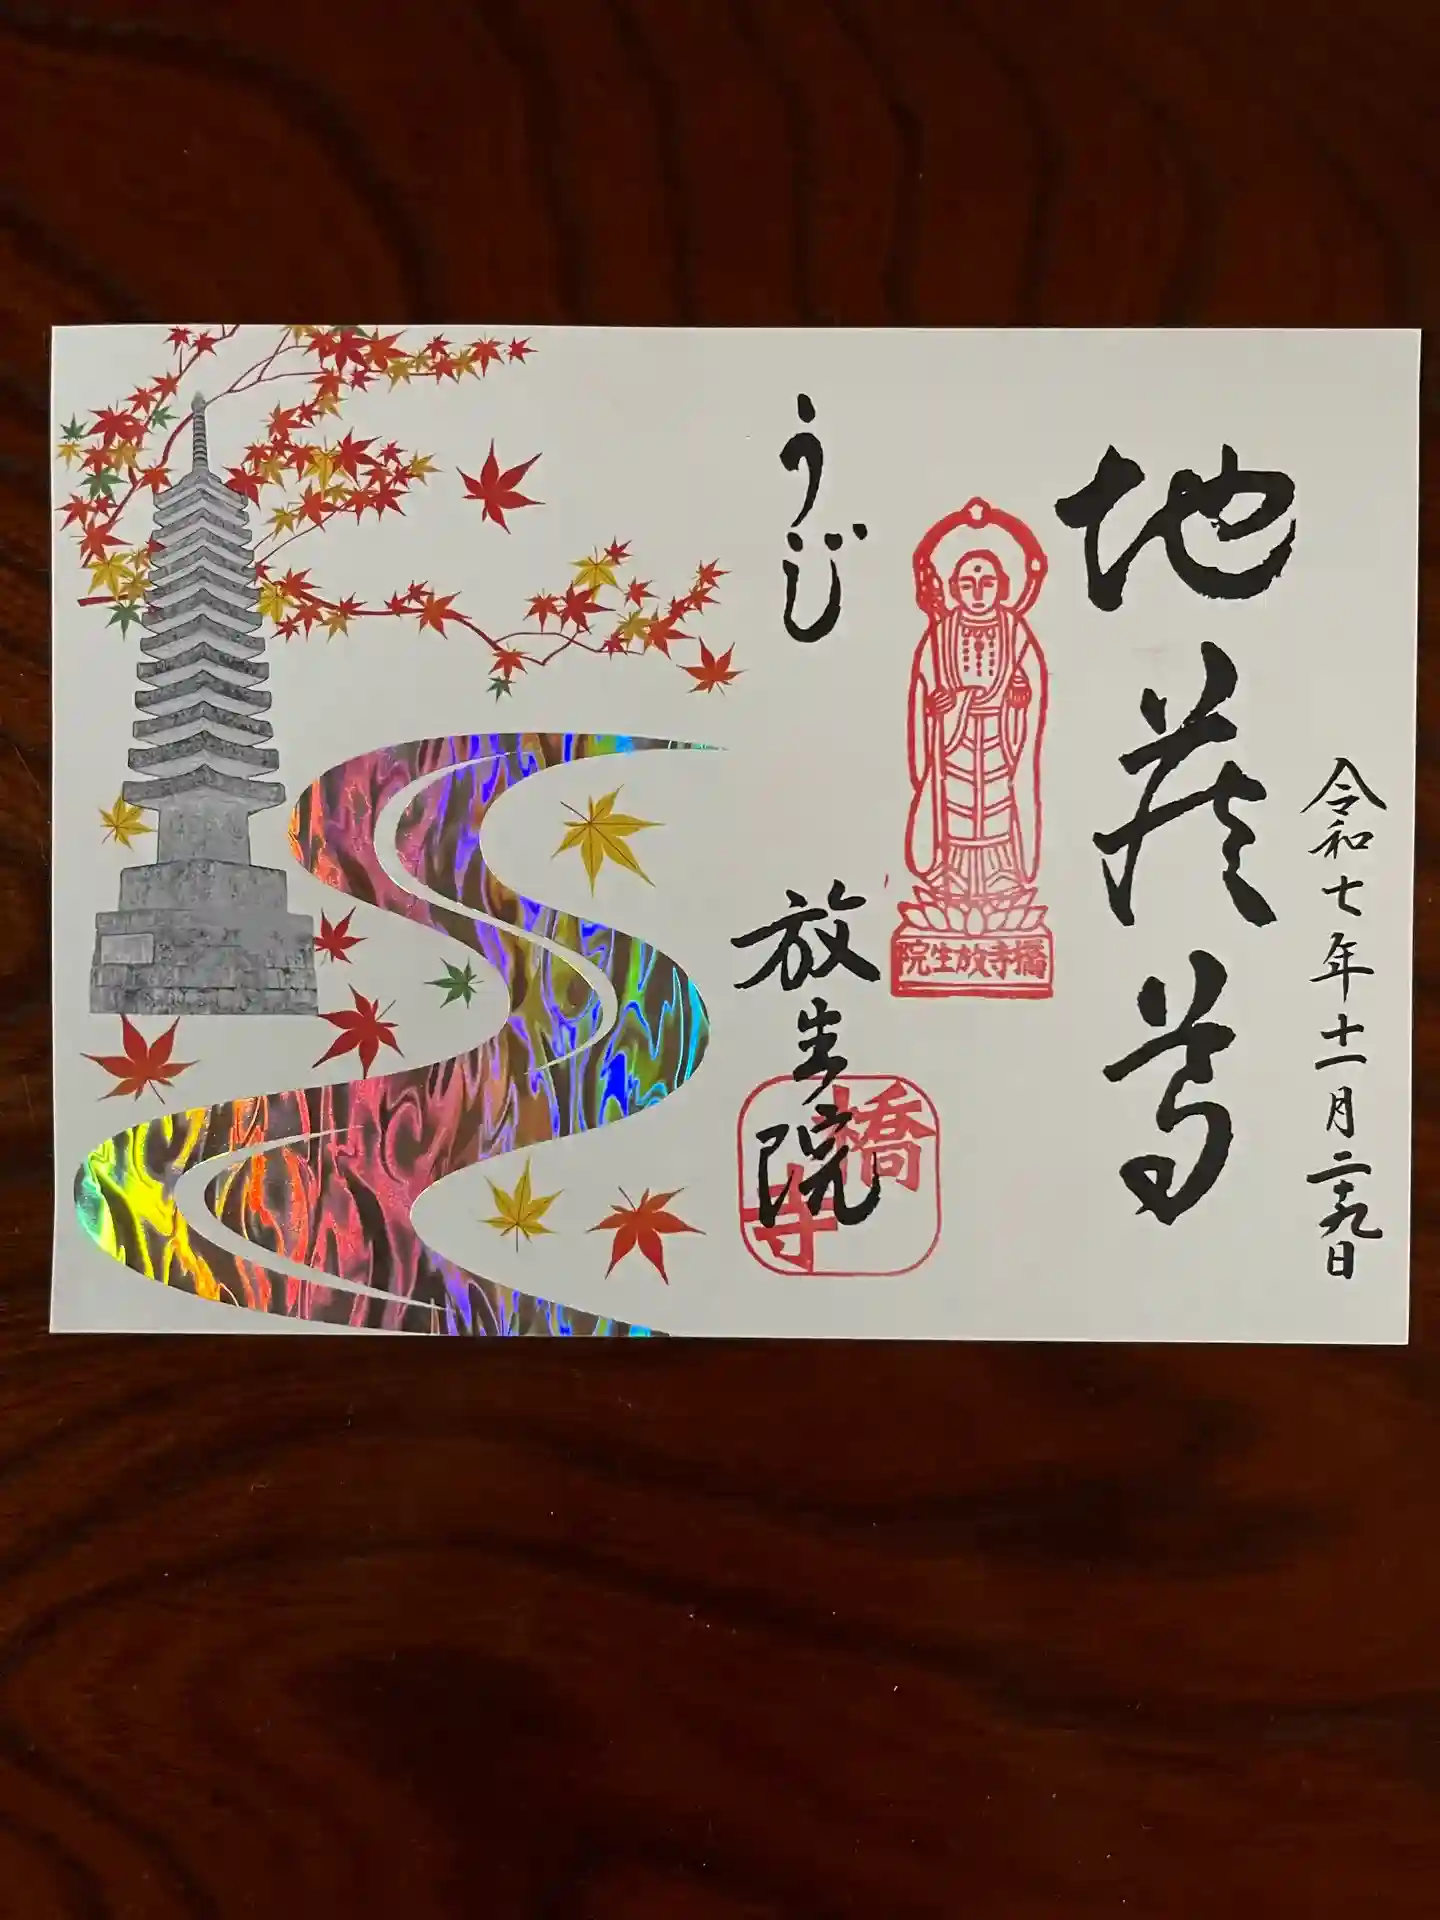 令和七年十一月二十九日
地蔵尊
橋寺放生院
うじ
放生院
橋寺